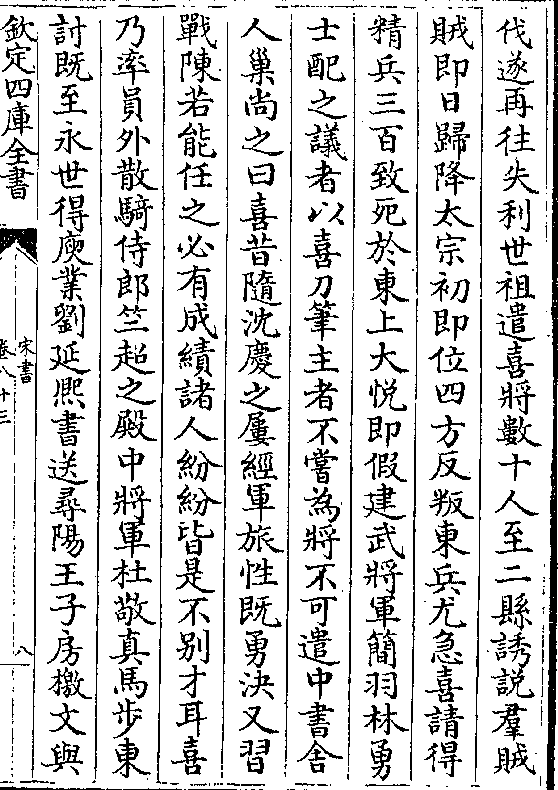 伐遂再往失利世祖遣喜將數十人至二縣誘説羣賊
賊即日歸降太宗初即位四方反叛東兵尤急喜請得
精兵三百致死於東上大悦即假建武將軍簡羽林勇
士配之議者以喜刀筆主者不嘗為將不可遣中書舍
人巢尚之曰喜昔隨沈慶之屢經軍旅性既勇決又習
戰陳若能任之必有成績諸人紛紛皆是不别才耳喜
乃率員外散騎侍郎竺超之殿中將軍杜敬真馬步東
討既至永世得庾業劉延熈書送尋陽王子房檄文與
欽定四庫全書
宋書
卷八十三
八